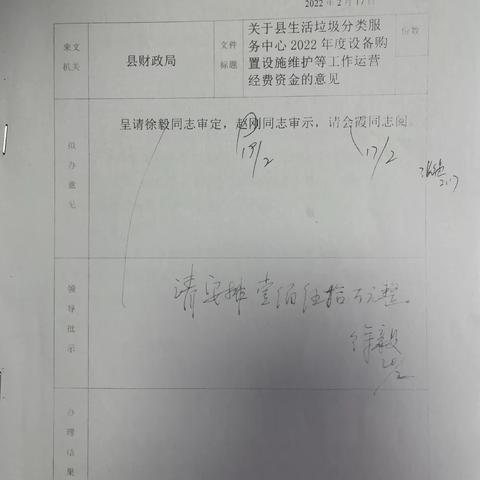 2022年2月17日
来文
机关
县财政局
文件
标题
关于县生活垃圾分类服
务中心 2022 年度设备购
置设施维护等工作运营
经费资金的意见
份数
呈请徐毅同志审定，赵刚同志审示，请会霞同志阅。
17/2
2.17
拟
办
意
见
请安排壹佰伍拾万元整。
徐毅
领
导
批
示
办
理
结
果